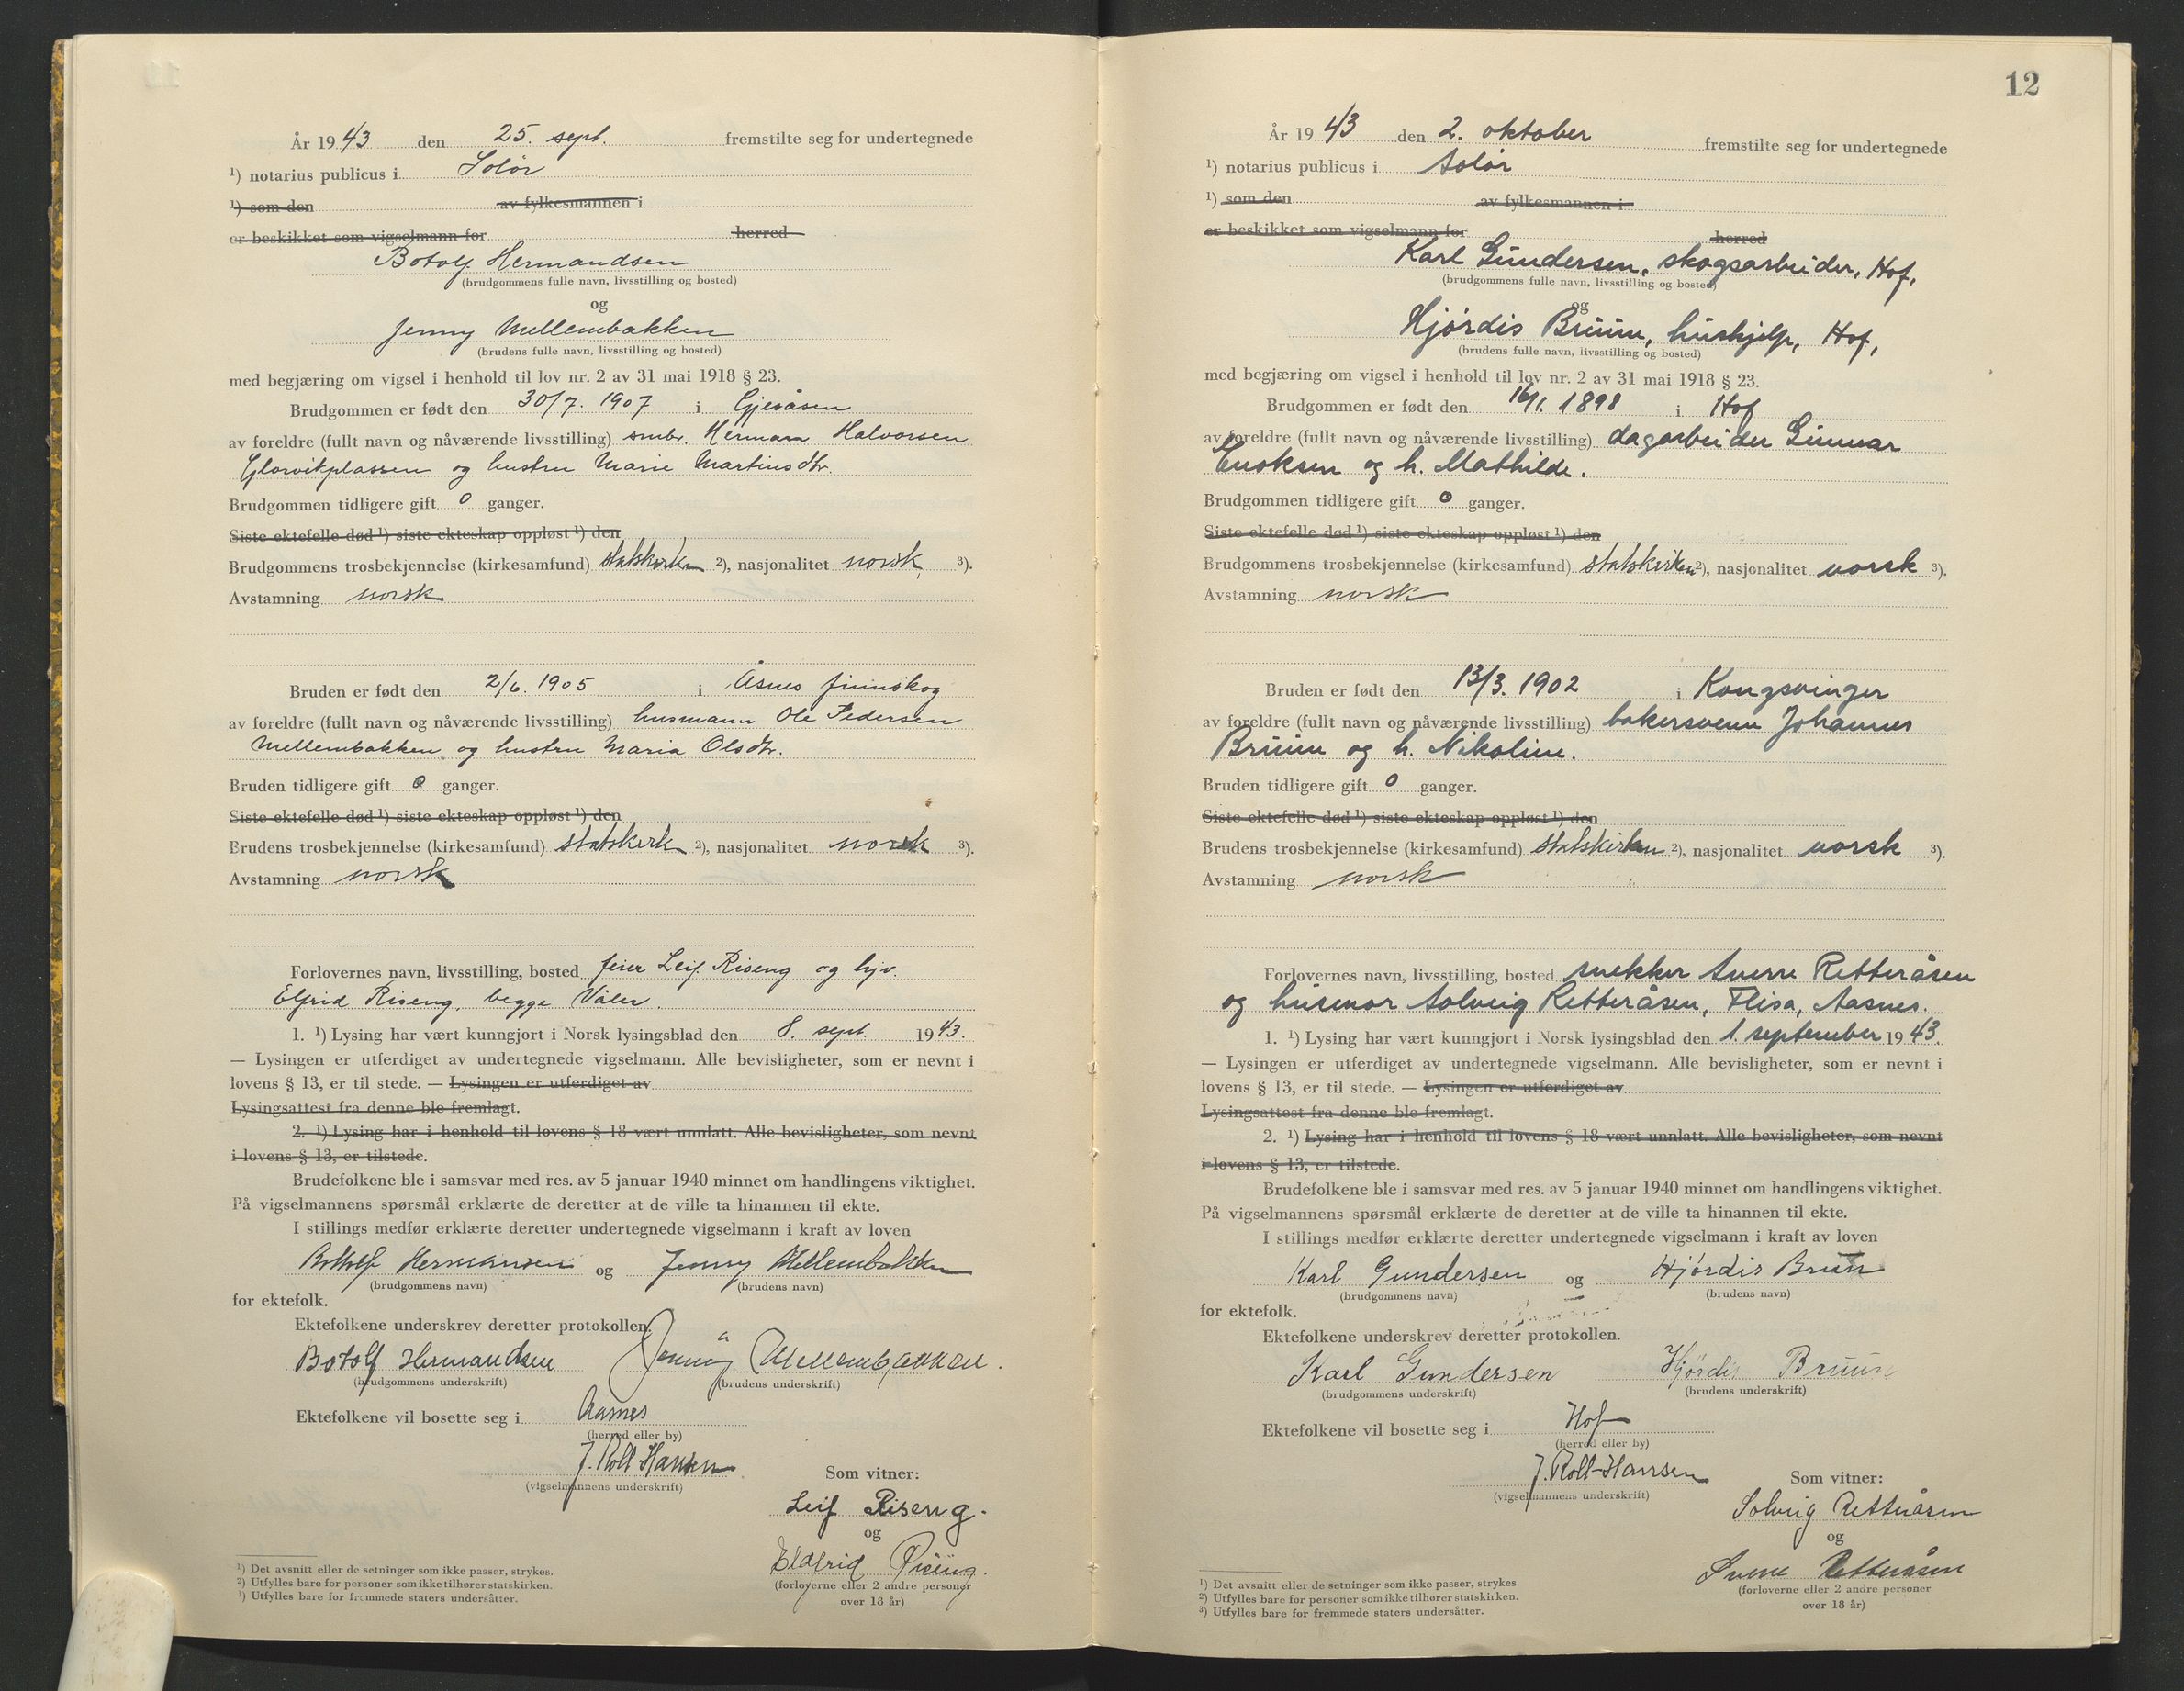 År 1943 den 25. sept. fremstilte seg for undertegnede
¹) notarius publicus i Solør
¹) som den av fylkesmannen i
er beskikket som vigselmann for herred
Botolf Hermandsen
(brudgommens fulle navn, livsstilling og bosted)
og
Jenny Mellembakken
(brudens fulle navn, livsstilling og bosted)
med begjæring om vigsel i henhold til lov nr. 2 av 31 mai 1918 § 23.
Brudgommen er født den 30/7. 1907 i Gjesåsen
av foreldre (fullt navn og nåværende livsstilling) smbr. Herman Halvorsen
Glorvikplassen og hustru Marie Martinsdtr.
Brudgommen tidligere gift 0 ganger.
Siste ektefelle død ¹) siste ekteskap oppløst ¹) den
Brudgommens trosbekjennelse (kirkesamfund) statskirken ²), nasjonalitet norsk ³).
Avstamning norsk
Bruden er født den 2/6. 1905 i Åsnes finnskog
av foreldre (fullt navn og nåværende livsstilling) husmann Ole Pedersen
Mellembakken og hustru Maria Olsdtr.
Bruden tidligere gift 0 ganger.
Siste ektefelle død ¹) siste ekteskap oppløst ¹) den
Brudens trosbekjennelse (kirkesamfund) statskirk ²), nasjonalitet norsk ³).
Avstamning norsk
Forlovernes navn, livsstilling, bosted feier Leif Riseng og hjv.
Elfrid Riseng, begge Våler.
1. ¹) Lysing har vært kunngjort i Norsk lysingsblad den 8. sept. 1943.
— Lysingen er utferdiget av undertegnede vigselmann. Alle bevisligheter, som er nevnt i
lovens § 13, er til stede. — Lysingen er utferdiget av
Lysingsattest fra denne ble fremlagt.
2. ¹) Lysing har i henhold til lovens § 18 vært unnlatt. Alle bevisligheter, som nevnt
i lovens § 13, er tilstede.
Brudefolkene ble i samsvar med res. av 5 januar 1940 minnet om handlingens viktighet.
På vigselmannens spørsmål erklærte de deretter at de ville ta hinannen til ekte.
I stillings medfør erklærte deretter undertegnede vigselmann i kraft av loven
Botholf Hermansen og Jenny Mellembakken
(brudgommens navn) (brudens navn)
for ektefolk.
Ektefolkene underskrev deretter protokollen.
Botolf Hermandsen Jenny Mellembakken.
(brudgommens underskrift) (brudens underskrift)
Ektefolkene vil bosette seg i Aasnes
(herred eller by)
J. Roll-Hansen
(vigselmannens underskrift)
Som vitner:
Leif Riseng.
og
Eldfrid Riseng.
(forloverne eller 2 andre personer
over 18 år)
¹) Det avsnitt eller de setninger som ikke passer, strykes.
²) Utfylles bare for personer som ikke tilhører statskirken.
³) Utfylles bare for fremmede staters undersåtter.
12
År 1943 den 2. oktober fremstilte seg for undertegnede
¹) notarius publicus i Solør
¹) som den av fylkesmannen i
er beskikket som vigselmann for herred
Karl Gundersen, skogsarbeider, Hof,
(brudgommens fulle navn, livsstilling og bosted)
og
Hjørdis Bruun, hushjelp, Hof,
(brudens fulle navn, livsstilling og bosted)
med begjæring om vigsel i henhold til lov nr. 2 av 31 mai 1918 § 23.
Brudgommen er født den 16/1. 1898 i Hof
av foreldre (fullt navn og nåværende livsstilling) dagarbeider Gunnar
Enoksen og h. Mathilde.
Brudgommen tidligere gift 0 ganger.
Siste ektefelle død ¹) siste ekteskap oppløst ¹) den
Brudgommens trosbekjennelse (kirkesamfund) statskirken ²), nasjonalitet norsk ³).
Avstamning norsk
Bruden er født den 13/3. 1902 i Kongsvinger
av foreldre (fullt navn og nåværende livsstilling) bakersvenn Johannes
Bruun og h. Nikoline.
Bruden tidligere gift 0 ganger.
Siste ektefelle død ¹) siste ekteskap oppløst ¹) den
Brudens trosbekjennelse (kirkesamfund) statskirken ²), nasjonalitet norsk ³).
Avstamning norsk
Forlovernes navn, livsstilling, bosted snekker Sverre Retteråsen
og husmor Solveig Retteråsen, Flisa, Aasnes.
1. ¹) Lysing har vært kunngjort i Norsk lysingsblad den 1. september 1943.
— Lysingen er utferdiget av undertegnede vigselmann. Alle bevisligheter, som er nevnt i
lovens § 13, er til stede. — Lysingen er utferdiget av
Lysingsattest fra denne ble fremlagt.
2. ¹) Lysing har i henhold til lovens § 18 vært unnlatt. Alle bevisligheter, som nevnt
i lovens § 13, er tilstede.
Brudefolkene ble i samsvar med res. av 5 januar 1940 minnet om handlingens viktighet.
På vigselmannens spørsmål erklærte de deretter at de ville ta hinannen til ekte.
I stillings medfør erklærte deretter undertegnede vigselmann i kraft av loven
Karl Gundersen og Hjørdis Bruun
(brudgommens navn) (brudens navn)
for ektefolk.
Ektefolkene underskrev deretter protokollen.
Karl Gundersen Hjørdis Bruun
(brudgommens underskrift) (brudens underskrift)
Ektefolkene vil bosette seg i Hof
(herred eller by)
J. Roll-Hansen
(vigselmannens underskrift)
Som vitner:
Solveig Retteråsen
og
Sverre Retteråsen
(forloverne eller 2 andre personer
over 18 år)
¹) Det avsnitt eller de setninger som ikke passer, strykes.
²) Utfylles bare for personer som ikke tilhører statskirken.
³) Utfylles bare for fremmede staters undersåtter.